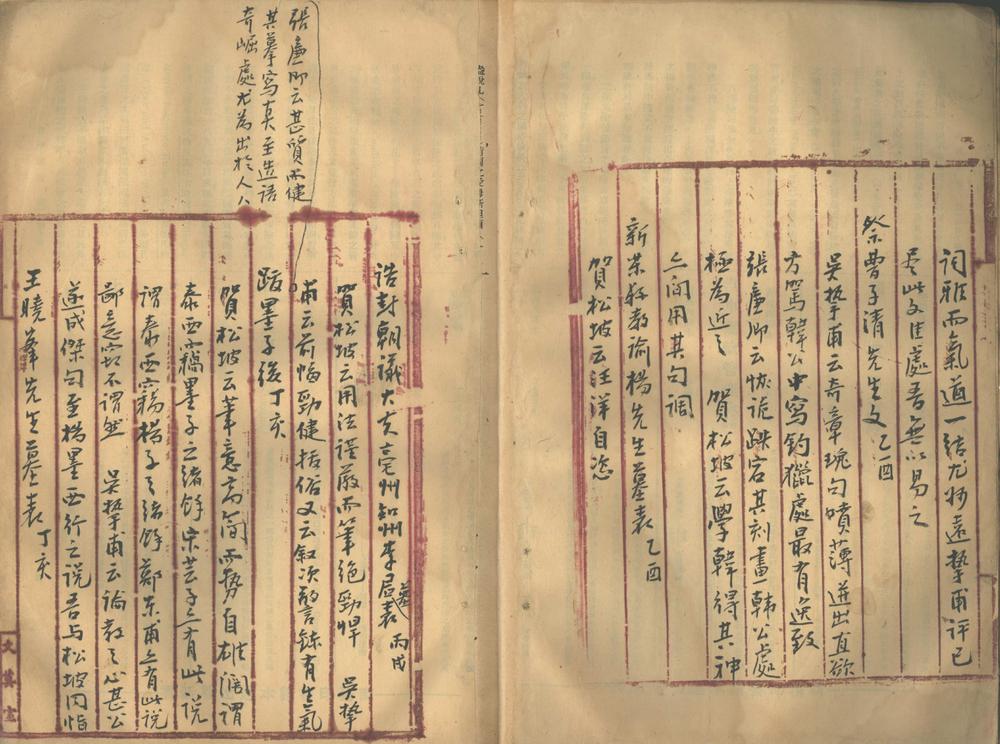 詞雅而氣遒一結尤妙遠摯甫評已
盡此文佳處吾無以易之
祭曹子清先生文乙酉
吳摯甫云奇章瑰句噴薄迸出直欲
方駕韓公中寫釣獵處最有逸致
張廉卿云恢詭踈宕其刻畫一韓公處
極為近之 賀松坡云學韓得其神
亦間用其句調
新樂教諭楊先生墓表乙酉
賀松坡云汪洋自恣
張廉卿云甚質而健
其摹寫真至造語
奇崛處尤為出於人人
誥封朝議大夫亳州知州李君墓表 丙戌
賀松坡云用法謹嚴而筆絕勁悍 吳摯
甫云前幅勁健括俗又云敘次警鍊有生氣
跋墨子後丁亥
賀松坡云筆意高簡而勢自雄闊謂
泰西竊墨子之緒餘宋芸子亦有此說
謂泰西竊楊子之緒餘鄭東甫亦有此說
鄙意當不謂然 吳摯甫云論教之心甚公
遂成傑句至楊墨西行之說吾與松坡同恉
王曉峯先生墓表丁亥